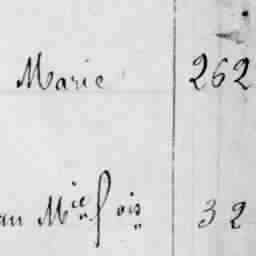 Marie 262
an M.ie fois 32